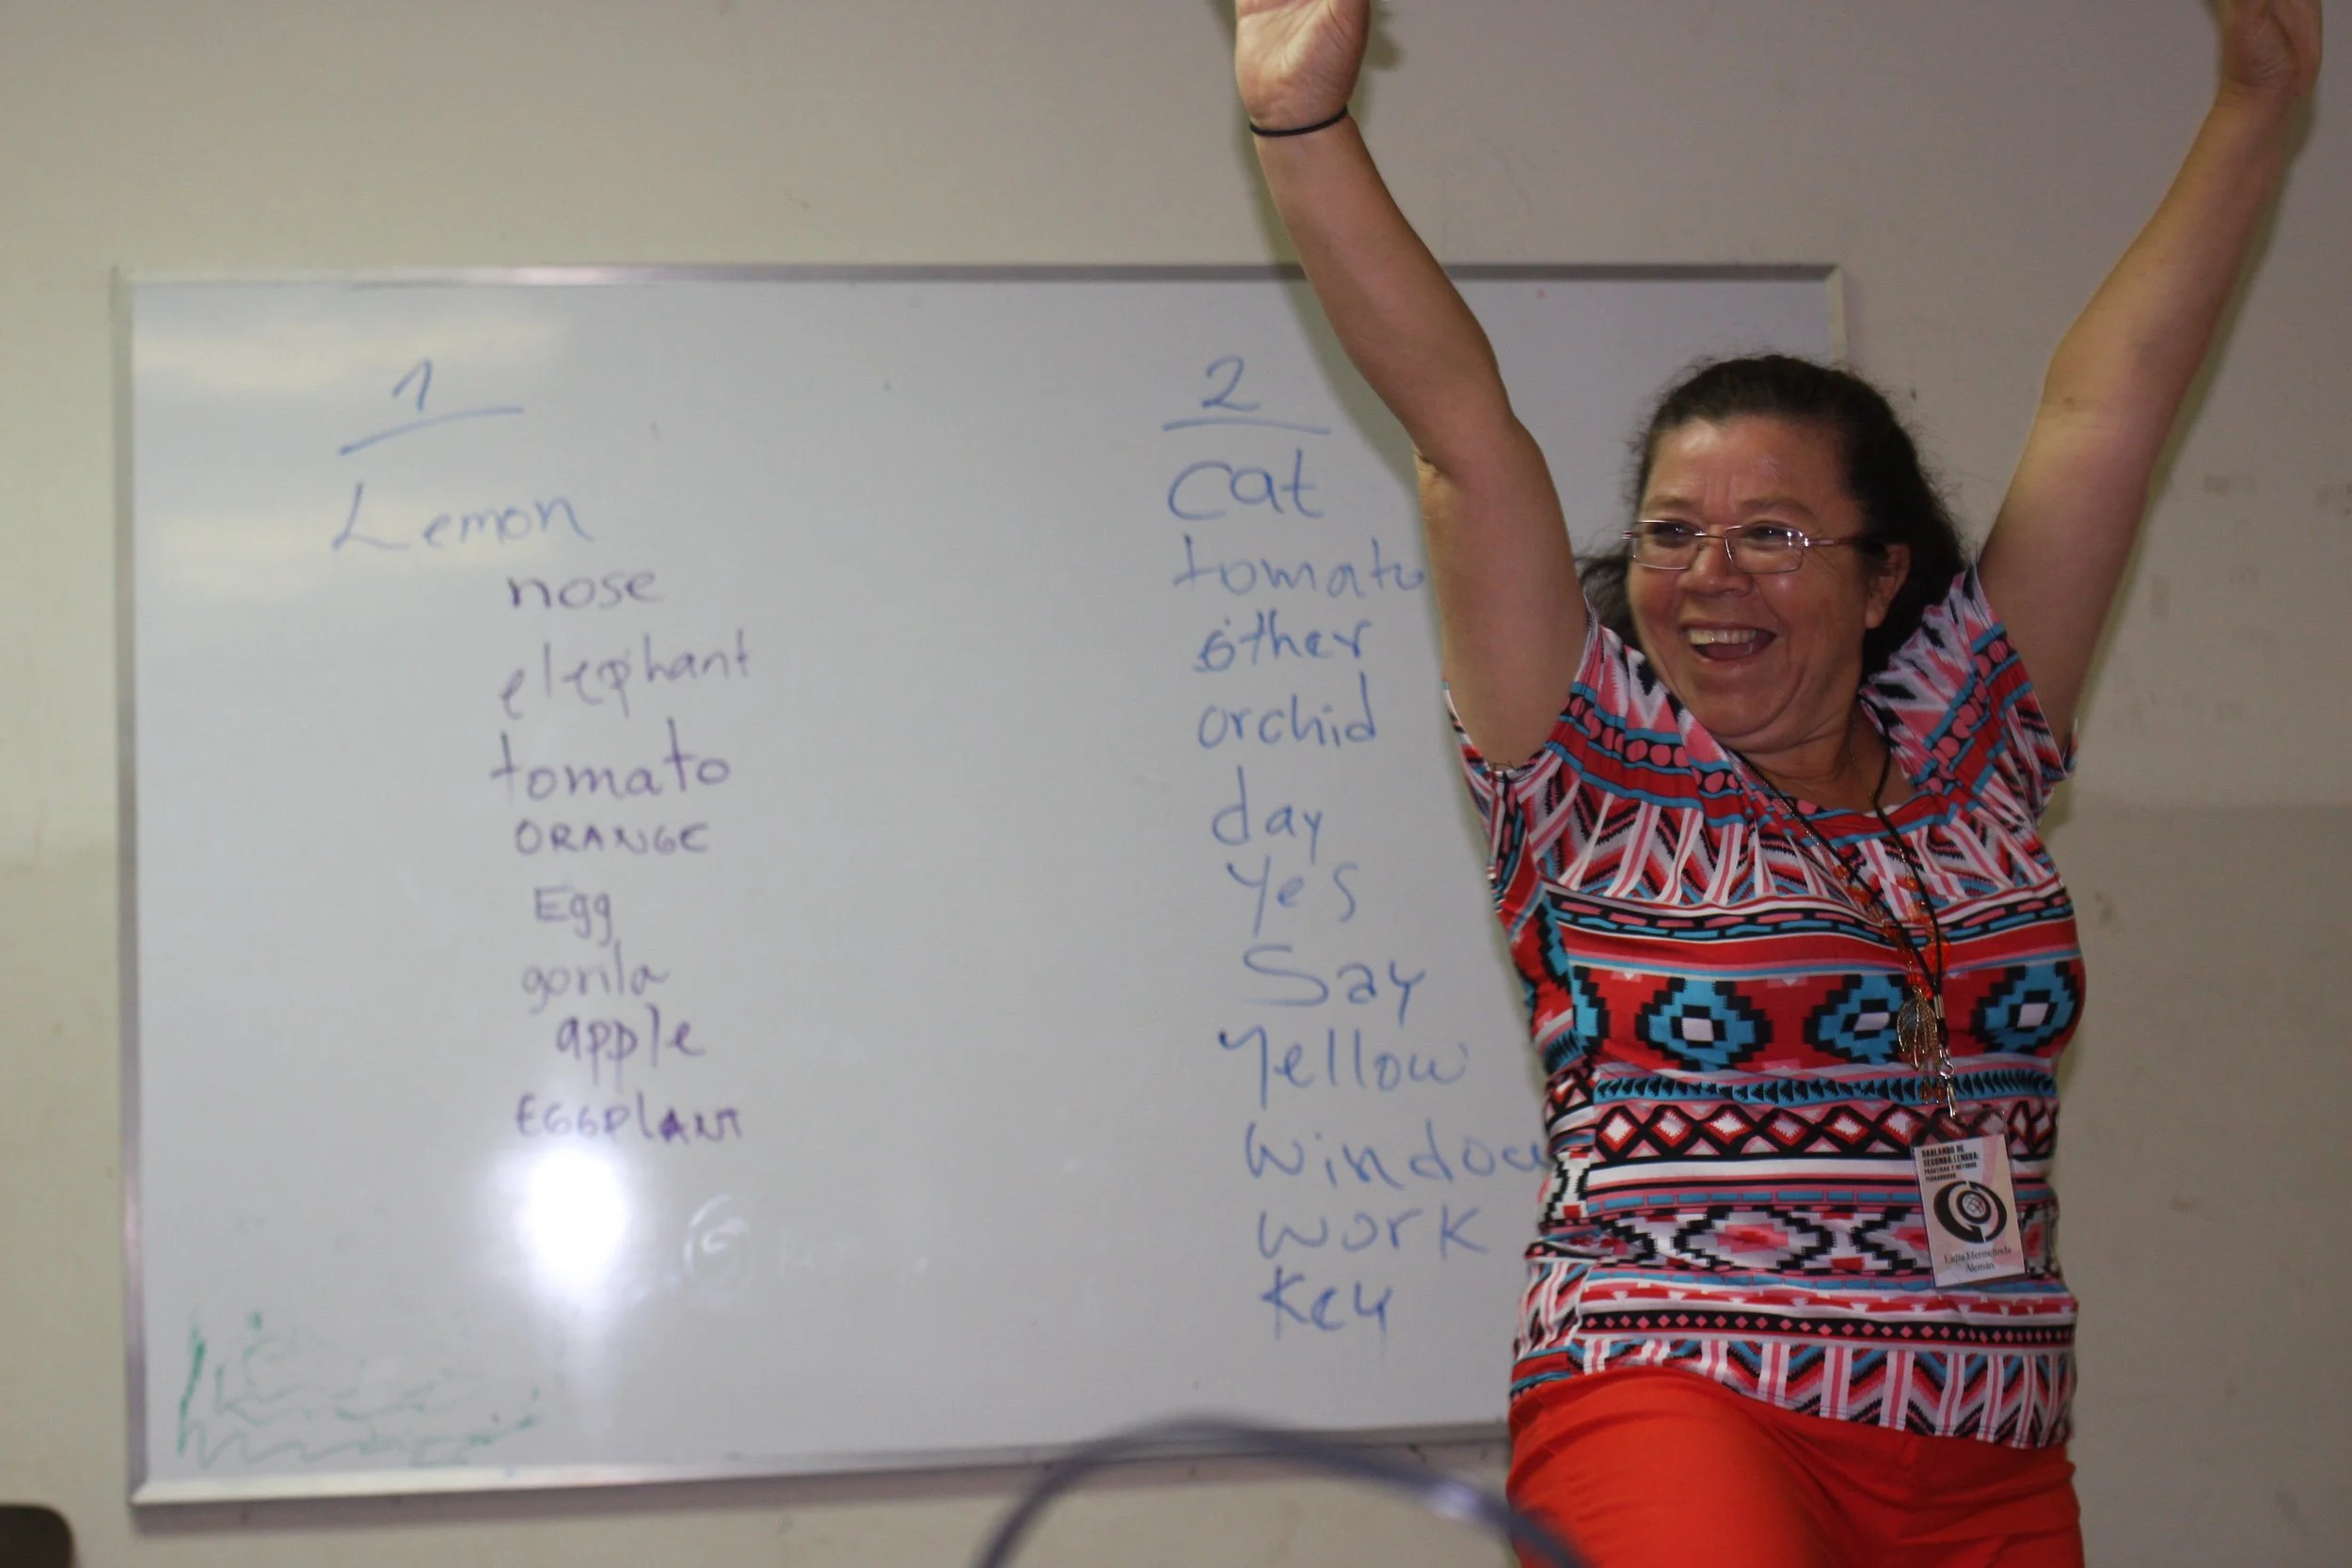 1
Lemon
nose
elephant
tomato
ORANGE
Egg
gorila
apple
EGGPlANT
2
cat
tomato
other
orchid
day
Yes
Say
Yellow
Window
work
Key
HABLANDO DE
SEGUNDA LENGUA:
Hermelinda
Alemán